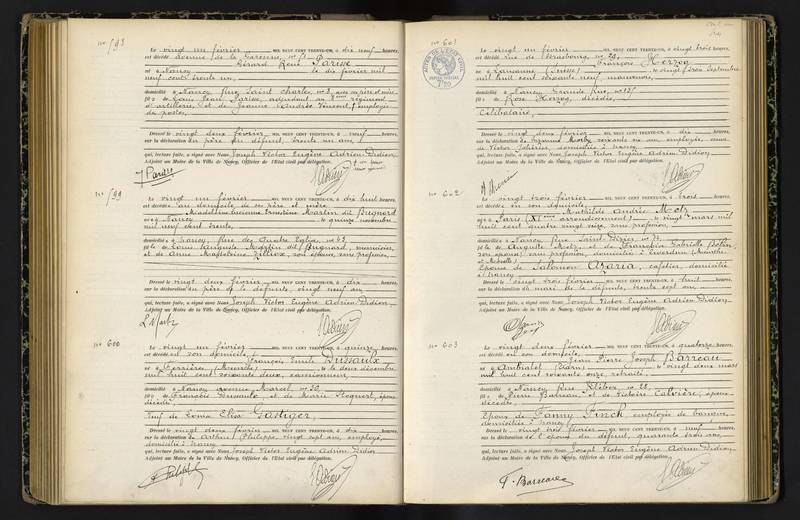 No 598
Le vingt un février MIL NEUF CENT TRENTE-UN, à dix neuf heures,
est décédé avenue de la Garenne, no
Gérard René Parisse
né à Nancy le dix février mil
neuf cent trente un,
domicilié à Nancy, rue Saint Charles, no 8, avec ses père et mère
fils de Louis Jean Parisse, adjudant au 8me régiment
d'artillerie, et de Jeanne Andrée Vincent, employée
de postes,
Dressé le vingt deux février MIL NEUF CENT TRENTE-UN, à neuf heures,
sur la déclaration du père du défunt, trente un ans,
qui, lecture faite, a signé avec Nous Joseph Victor Eugène Adrien Didion,
Adjoint au Maire de la Ville de Nancy, Officier de l'Etat civil par délégation.
Parisse
No 599
Le vingt un février MIL NEUF CENT TRENTE-UN, à dix huit heures,
est décédée au domicile de ses père et mère
Madeleine Lucienne Ernestine Martin dit Bugnard
née à Nancy le quinze novembre
mil neuf cent trente,
domiciliée à Nancy, rue des Quatre Eglises, no 43,
fille de Louis Auguste Martin dit Bugnard, menuisier,
et de Anne Magdeleine Zilliox, son épouse, sans profession,
Dressé le vingt deux février MIL NEUF CENT TRENTE-UN, à dix heures,
sur la déclaration du père de la défunte, vingt neuf ans,
qui, lecture faite, a signé avec Nous Joseph Victor Eugène Adrien Didion,
Adjoint au Maire de la Ville de Nancy, Officier de l'Etat civil par délégation.
No 600
Le vingt un février MIL NEUF CENT TRENTE-UN, à quinze heures,
est décédé en son domicile,
François Emile Dussaulx
né à Ferrières (Meurthe) le deux décembre
mil huit cent soixante deux, camionneur,
domicilié à Nancy, avenue Marcel, no 30,
fils de François Dussaulx, et de Marie Hoquert, époux
décédés,
Veuf de Louise Elisa Gastiger,
Dressé le vingt deux février MIL NEUF CENT TRENTE-UN, à dix heures,
sur la déclaration de Arthur Philippe, vingt sept ans, employé,
domicilié à Nancy
qui, lecture faite, a signé avec Nous Joseph Victor Eugène Adrien Didion
Adjoint au Maire de la Ville de Nancy, Officier de l'Etat civil par délégation.
No 601
Le vingt un février MIL NEUF CENT TRENTE-UN, à vingt trois heures,
est décédé rue de Strasbourg, no
François Herzog
né à Lausanne (Suisse) le vingt trois septembre
mil huit cent soixante neuf, manœuvre,
domicilié à Nancy Grande Rue, no
fils de Rose Herzog, décédée,
Célibataire,
Dressé le vingt deux février MIL NEUF CENT TRENTE-UN, à dix heures,
sur la déclaration de
domiciliée à Nancy
qui, lecture faite, a signé avec Nous Joseph Victor Eugène Adrien Didion
Adjoint au Maire de la Ville de Nancy, Officier de l'Etat civil par délégation.
No 602
Le vingt trois février MIL NEUF CENT TRENTE-UN, à trois heures,
est décédée en son domicile,
Mathilde Andrée Metz
née à Paris (XIme arrondissement) le vingt mars mil
huit cent quatre vingt seize, sans profession,
domiciliée à Nancy, rue Saint-Dizier, no
fille de Auguste Metz, et de Françoise Gabrielle
son épouse, sans profession, domiciliés à Liverdun (Meurthe
et Moselle),
Epouse de Salomon Azaria, cafetier, domicilié
à Nancy
Dressé le vingt trois février MIL NEUF CENT TRENTE-UN, à heures,
sur la déclaration du mari de la défunte, trente sept ans,
qui, lecture faite, a signé avec Nous Joseph Victor Eugène Adrien Didion,
Adjoint au Maire de la Ville de Nancy, Officier de l'Etat civil par délégation.
No 603
Le vingt deux février MIL NEUF CENT TRENTE-UN, à quatorze heures,
est décédé en son domicile,
Jean Pierre Joseph Barreau
né à Ambialet (Tarn) le vingt deux mars
mil huit cent soixante onze, retraité,
domicilié à Nancy Rue Kléber, no 28,
fils de Pierre Barreau, et de Victoire Calvière, époux
décédés,
Epoux de Fanny Finck employée de banque,
domiciliée à Nancy
Dressé le vingt trois février MIL NEUF CENT TRENTE-UN, à neuf heures,
sur la déclaration de l'épouse du défunt, quarante trois ans,
qui, lecture faite, a signé avec Nous Joseph Victor Eugène Adrien Didion,
Adjoint au Maire de la Ville de Nancy, Officier de l'Etat civil par délégation.
F. Barreau